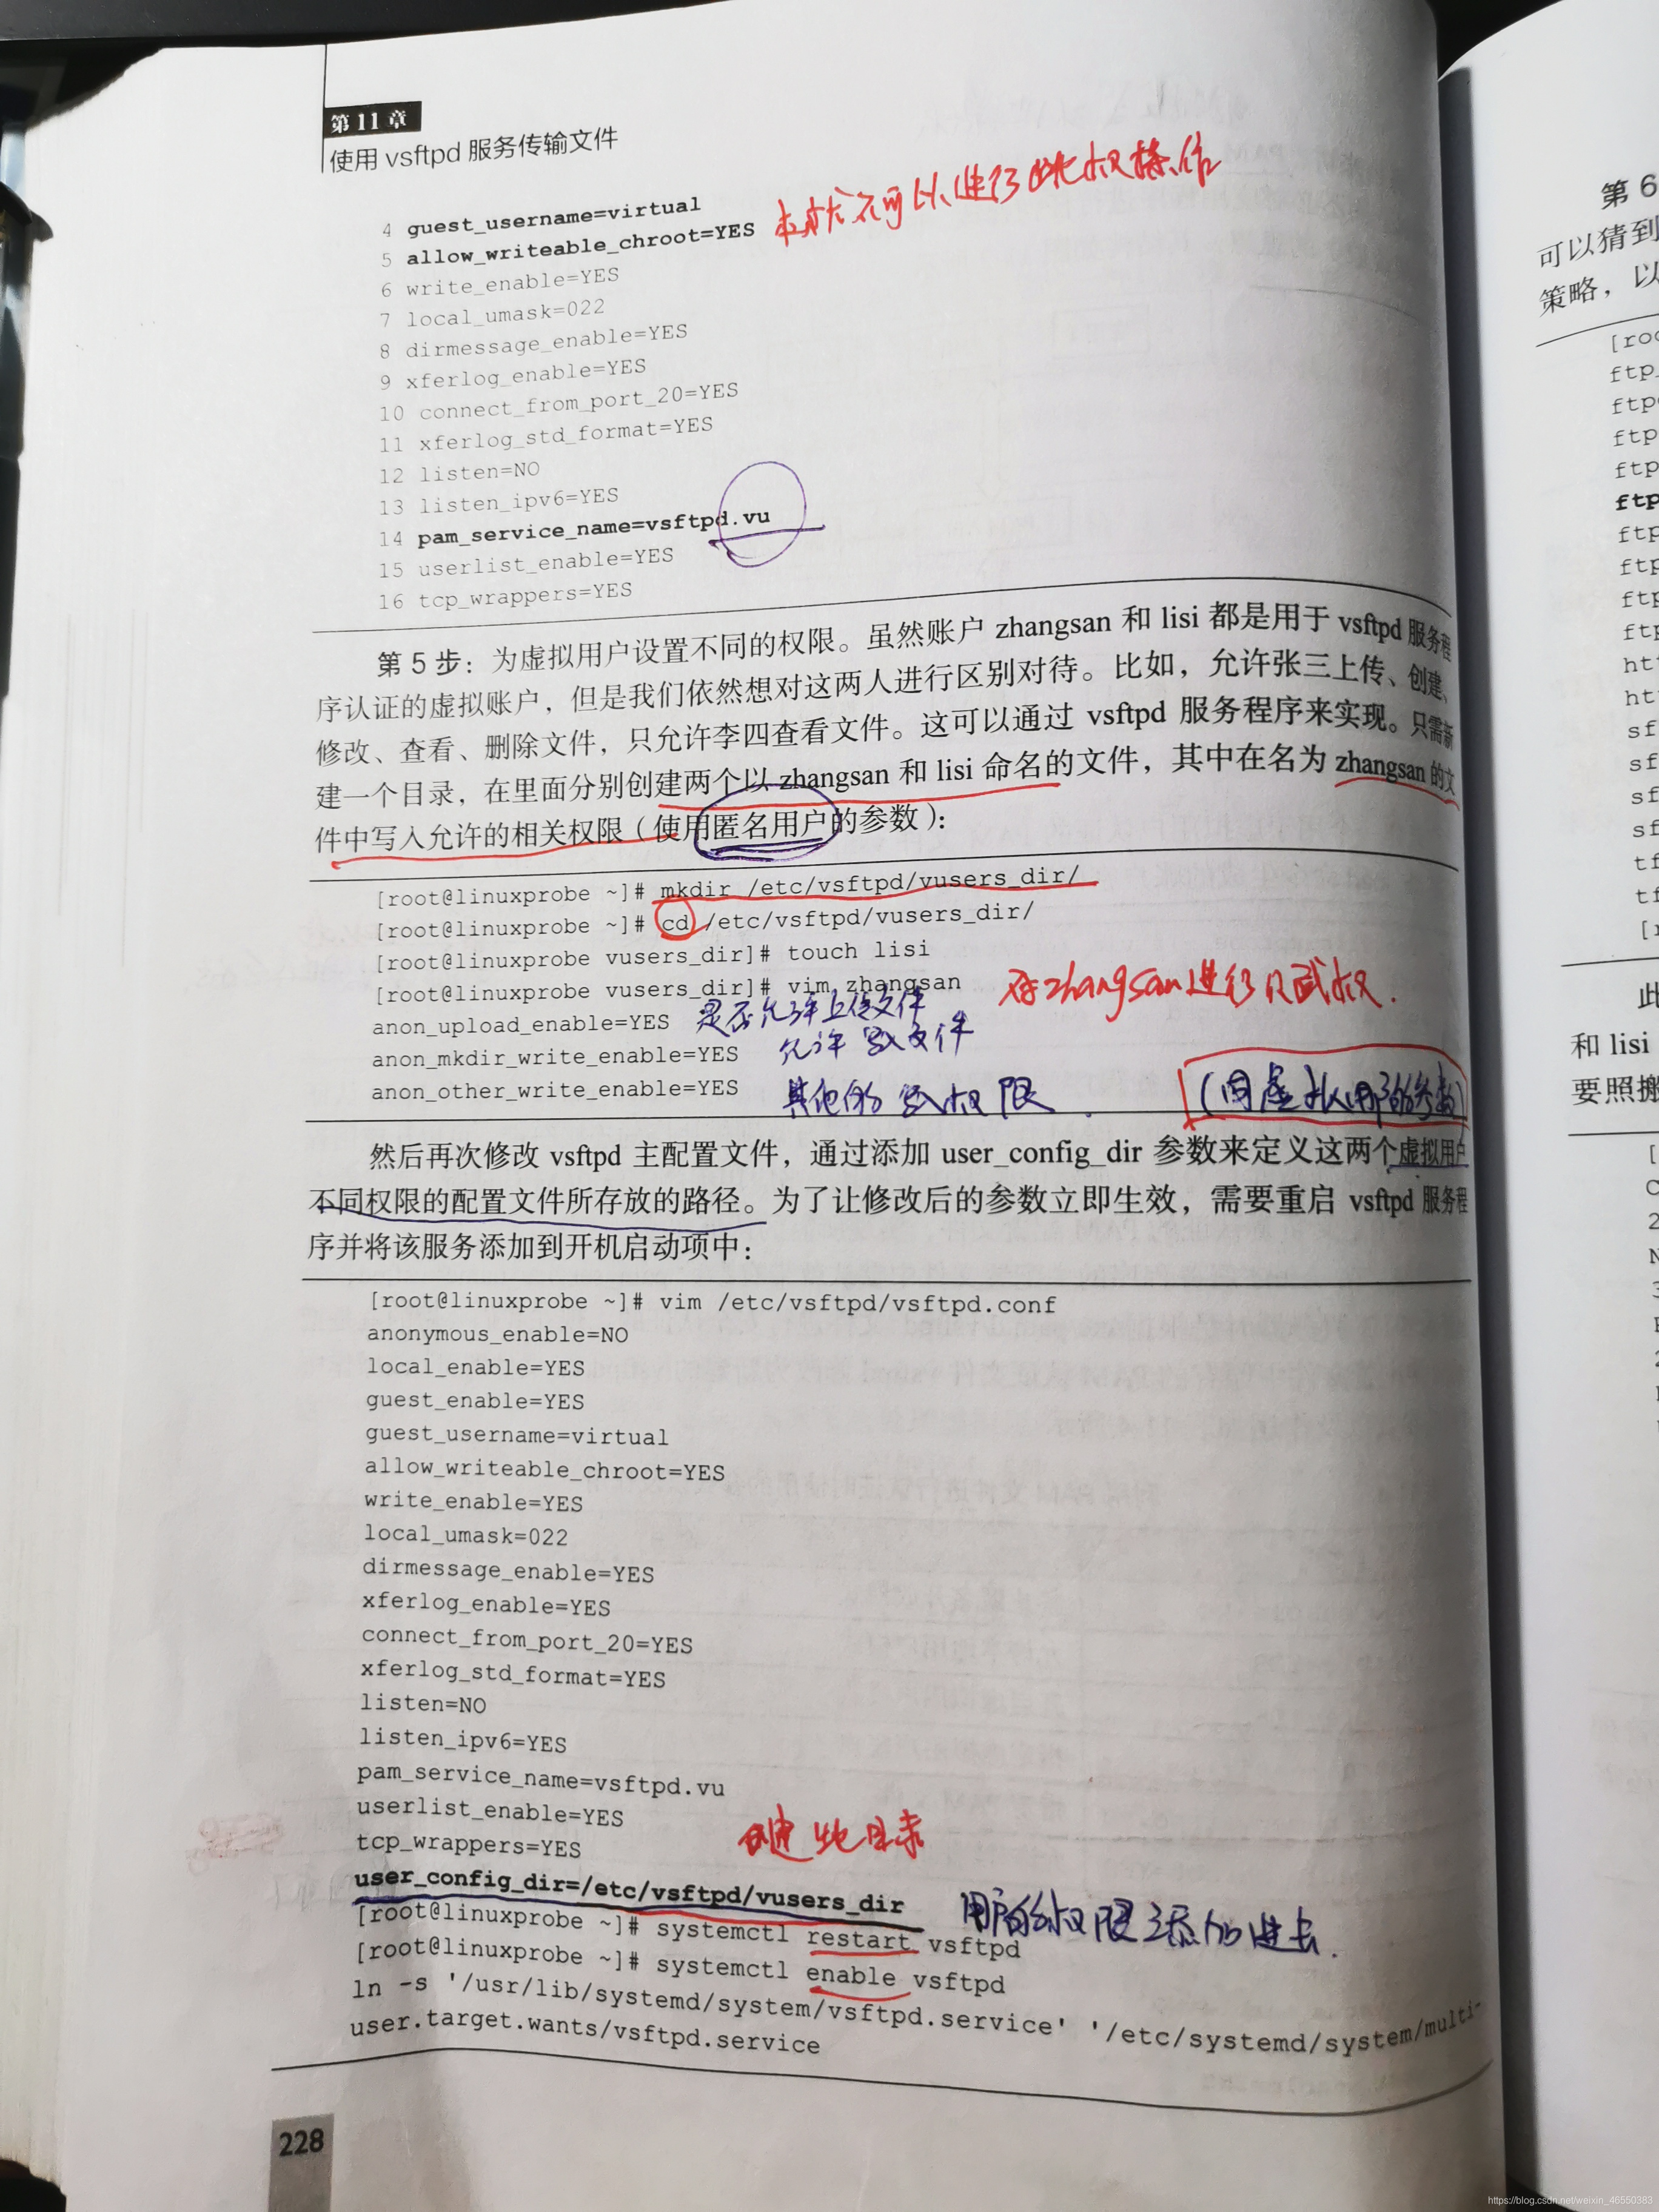 第11章
使用 vsftpd 服务传输文件
4 guest_username=virtual
5 allow_writeable_chroot=YES
6 write_enable=YES
7 local_umask=022
8 dirmessage_enable=YES
9 xferlog_enable=YES
10 connect_from_port_20=YES
11 xferlog_std_format=YES
12 listen=NO
13 listen_ipv6=YES
14 pam_service_name=vsftpd.vu
15 userlist_enable=YES
16 tcp_wrappers=YES
第 5 步：为虚拟用户设置不同的权限。虽然账户 zhangsan 和 lisi 都是用于 vsftpd 服务程
序认证的虚拟账户，但是我们依然想对这两人进行区别对待。比如，允许张三上传、创建、
修改、查看、删除文件，只允许李四查看文件。这可以通过 vsftpd 服务程序来实现。只需新
建一个目录，在里面分别创建两个以 zhangsan 和 lisi 命名的文件，其中在名为 zhangsan 的文
件中写入允许的相关权限（使用匿名用户的参数）：
[root@linuxprobe ~]# mkdir /etc/vsftpd/vusers_dir/
[root@linuxprobe ~]# cd /etc/vsftpd/vusers_dir/
[root@linuxprobe vusers_dir]# touch lisi
[root@linuxprobe vusers_dir]# vim zhangsan
对zhangsan进行
anon_upload_enable=YES 是否允许上传文件
anon_mkdir_write_enable=YES 允许写文件
anon_other_write_enable=YES 其他的写权限
然后再次修改 vsftpd 主配置文件，通过添加 user_config_dir 参数来定义这两个虚拟用户
不同权限的配置文件所存放的路径。为了让修改后的参数立即生效，需要重启 vsftpd 服务程
序并将该服务添加到开机启动项中：
[root@linuxprobe ~]# vim /etc/vsftpd/vsftpd.conf
anonymous_enable=NO
local_enable=YES
guest_enable=YES
guest_username=virtual
allow_writeable_chroot=YES
write_enable=YES
local_umask=022
dirmessage_enable=YES
xferlog_enable=YES
connect_from_port_20=YES
xferlog_std_format=YES
listen=NO
listen_ipv6=YES
pam_service_name=vsftpd.vu
userlist_enable=YES
tcp_wrappers=YES
创建此目录
user_config_dir=/etc/vsftpd/vusers_dir
用户的权限添加进去.
[root@linuxprobe ~]# systemctl restart vsftpd
[root@linuxprobe ~]# systemctl enable vsftpd
ln -s '/usr/lib/systemd/system/vsftpd.service' '/etc/systemd/system/multi-
user.target.wants/vsftpd.service
228
第 6
可以猜到
策略，以
[roo
ftp
ftp
ftp
ftp
ftp
ftp
ftp
ftp
ftp
ht
ht
sf
sf
sf
sf
tf
tf
此
和 lisi
要照搬
https://blog.csdn.net/weixin_46550383